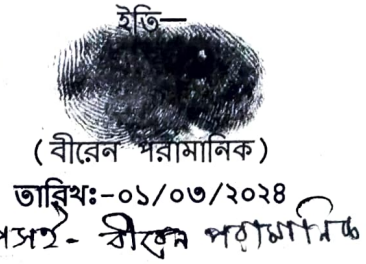 ইতি—
( বীরেন পরামানিক )
তারিখঃ-০১/০৩/২০২৪
বীরেন পরামানিক